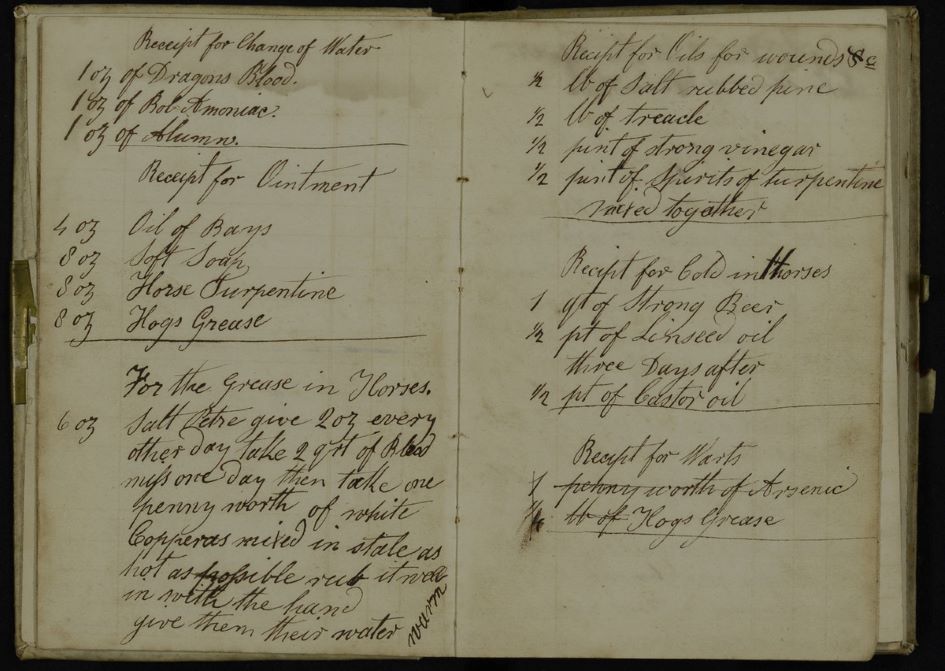 Receipt for Change of Water
1 oz of Dragons Blood.
1 oz of Bol Amoniac.
1 oz of Alumn.
Receipt for Ointment
4 oz Oil of Bays
8 oz Soft Soap
8 oz Horse Turpentine
8 oz Hogs Grease
For the Grease in Horses.
6 oz Salt Petre give 2 oz every
other day take 2 qrt of Blood
miss one day then take one
penny worth of white
Copperas mixed in stale as
hot as possible rub it well
in with the hand
give them their water warm
Recipt for Oils for wounds &c
½ lb of Salt rubbed fine
½ lb of treacle
½ pint of strong vinegar
½ pint of Spirits of turpentine
mixed together
Recipt for Cold in Horses
1 qt of Strong Beer
½ pt of Linseed oil
three Days after
½ pt of Castor oil
Receipt for Warts
1 penny worth of Arsenic
lb of Hogs Grease